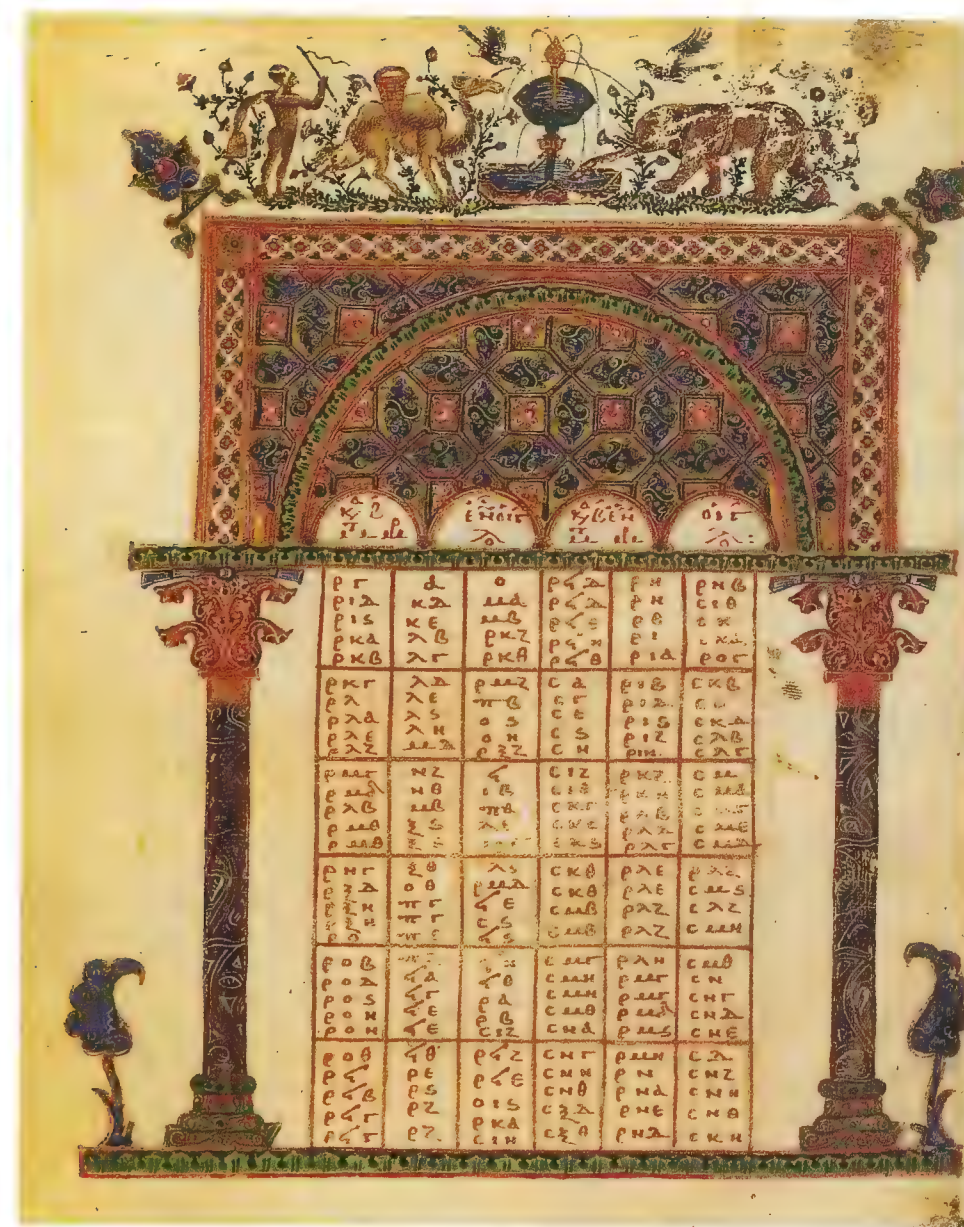 ργ α ο ρϟδ ρη ρνβ
ριδ κδ μα ρϟδ ρη σιθ
ριϛ κε μβ ρϟε ρθ σκ
ρκα λβ ρκζ ρϟη ρι σκα
ρκβ λγ ρκθ ρϟθ ρια ρογ
ρκγ λδ ρμζ σα ριβ σκβ
ρλ λε πβ σγ ριδ
ρλα λϛ οϛ σε ριϛ σκδ
ρλε λη οη σϛ ριζ σλβ
ρλζ μδ ρξζ ση ριη σλγ
ρμγ νζ ϟ σιζ ρκζ σμ
ρμδ νθ ιβ σιθ ρκη σμα
ρλβ μβ πθ σκγ ρλ
ρμθ ξϛ λε σκε ρλδ σμε
ρμθ σκϛ ρλγ σμδ
ρνγ ξθ λϛ σκθ ρλε ρλζ
ρξδ οθ ρμδ σκθ ρλε σμϛ
ρξη πγ ϟε σμβ ρλζ σλζ
ρξη πγ σϛ σμβ ρλζ σμη
ρο ϟϛ
ροβ σμγ ρλη σμθ
ροδ ϟα ϟθ σμη ρμγ σν
ροϛ ϟγ ρα σμη ρμγ σνγ
ροη ϟε ρβ σμθ ρμδ σνδ
ροη ϟε σιζ σνα ρμϛ σνε
ροθ ϟθ ρϟζ σνγ ρμη σδ
ρϟ ρε ρϟε σνη ρν σνζ
ρϟβ ρϛ οιϛ σνθ ρνα σνη
ρϟγ ρζ ρκα σξδ ρνε σνθ
ρϟγ ρζ σιη σξθ ρνδ σκη